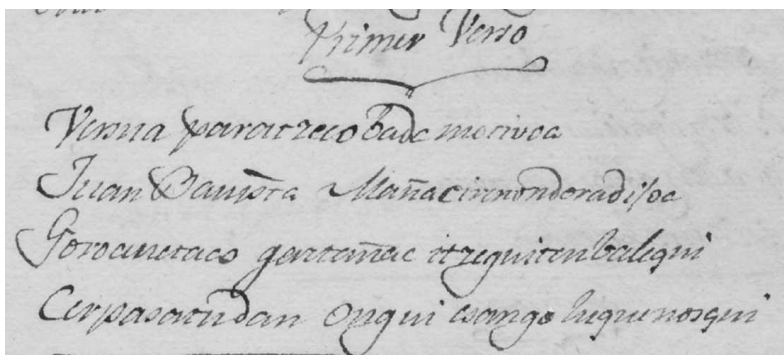 Primer Verso
Versua paratzeco bada motivoa
Juan Bautista Mañacinnonderadisoe
Goroanetaco gaztañac itzeguiten balequi
Cer pasatu dan ongui esango luque nosqui